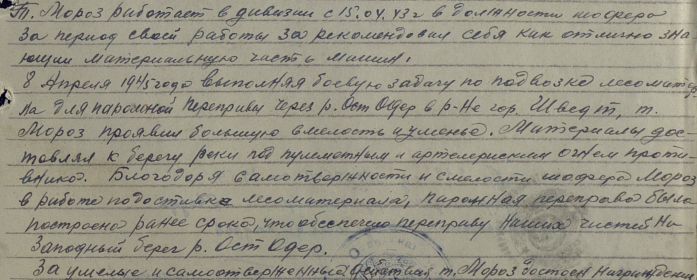 Т. Мороз работает в дивизии с 15.04.43г в должности шофера
За период своей работы зарекомендовал себя как отлично зна-
ющий материальную часть машин.
8 Апреля 1945 года выполняя боевую задачу по подвозке лесоматер
ла для паромной переправы через р. Ост Одер в р-не гор. Шведт, т.
Мороз проявил большую смелость и уменье. Материалы дос-
товлял к берегу реки под пулеметным и артелериским огнем проти
вника. Благодоря самотвержности и смелости шофера Мороз
в работе по доставке лесоматериала, паромная переправа была
построена ранее срока, что обеспечело переправу наших частей на
Западный берег р. Ост Одер.
За умелые и самоотверженные действия т. Мороз достоен награждения